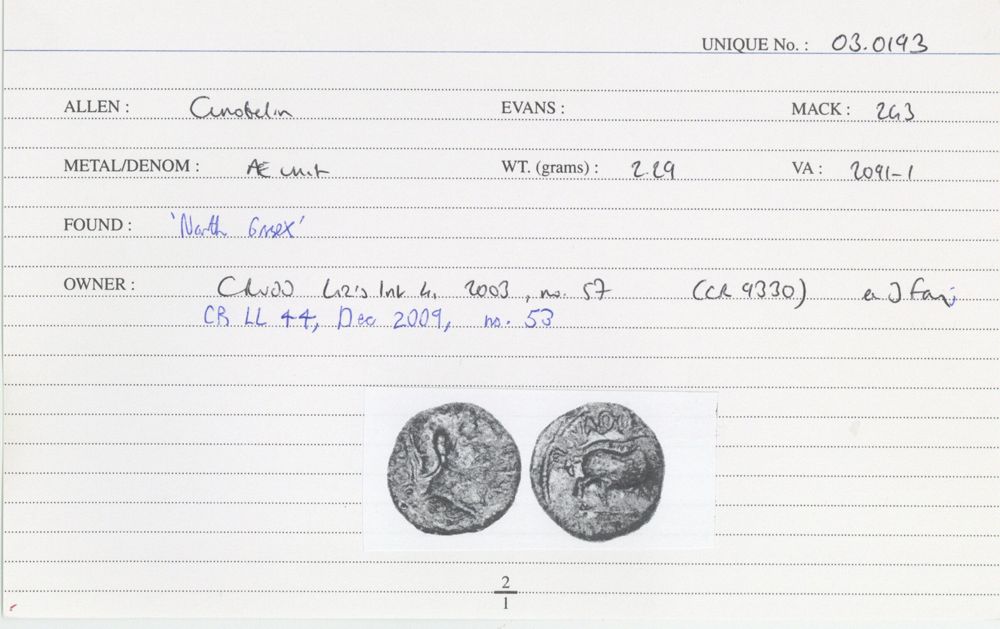 UNIQUE No. : 03.0193
ALLEN : Cunobelin EVANS : MACK : 243
METAL/DENOM : Æ unit WT. (grams) : 2.29 VA : 2091-1
FOUND : 'North Essex'
OWNER : Liz's 2003, no. 57 (CR 9330) ex J
CR LL 44, Dec 2009, no. 53
2
1